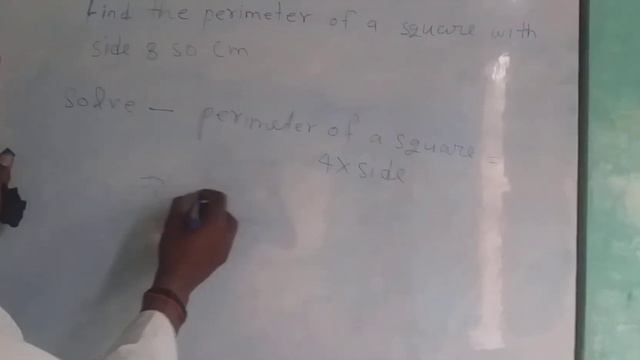 Find the perimeter of a square with
side 8 50 cm
Solve — perimeter of a square =
4 × side
=